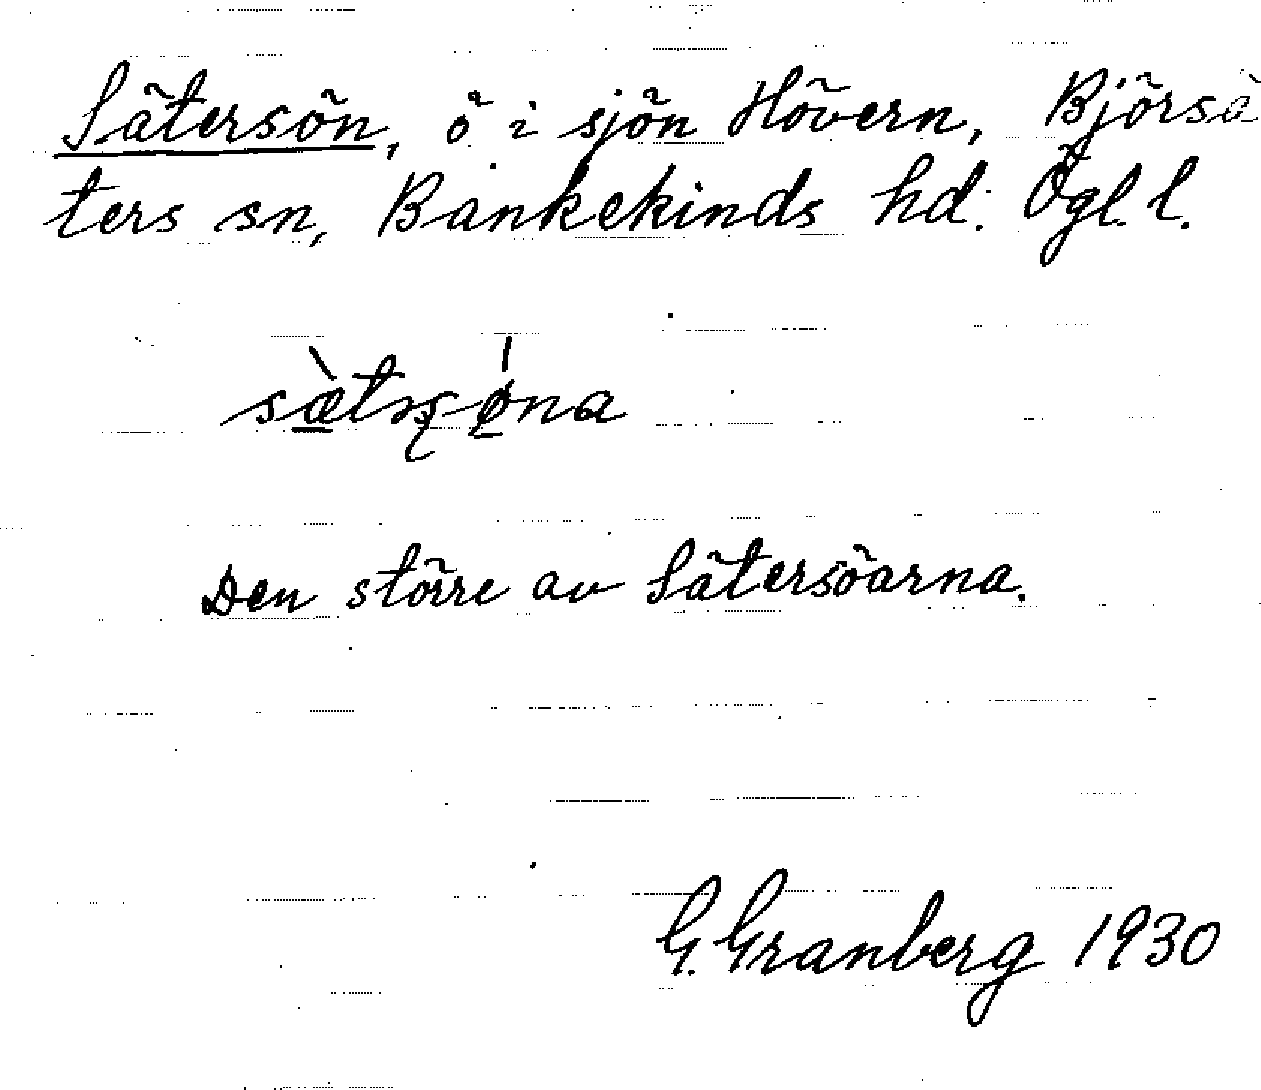 Sätersön, ö i sjön Hövern, Björsä
ters sn, Bankekinds hd. Ögl. l.
sæ̀tʂǿna
Den större av Sätersöarna.
G. Granberg 1930